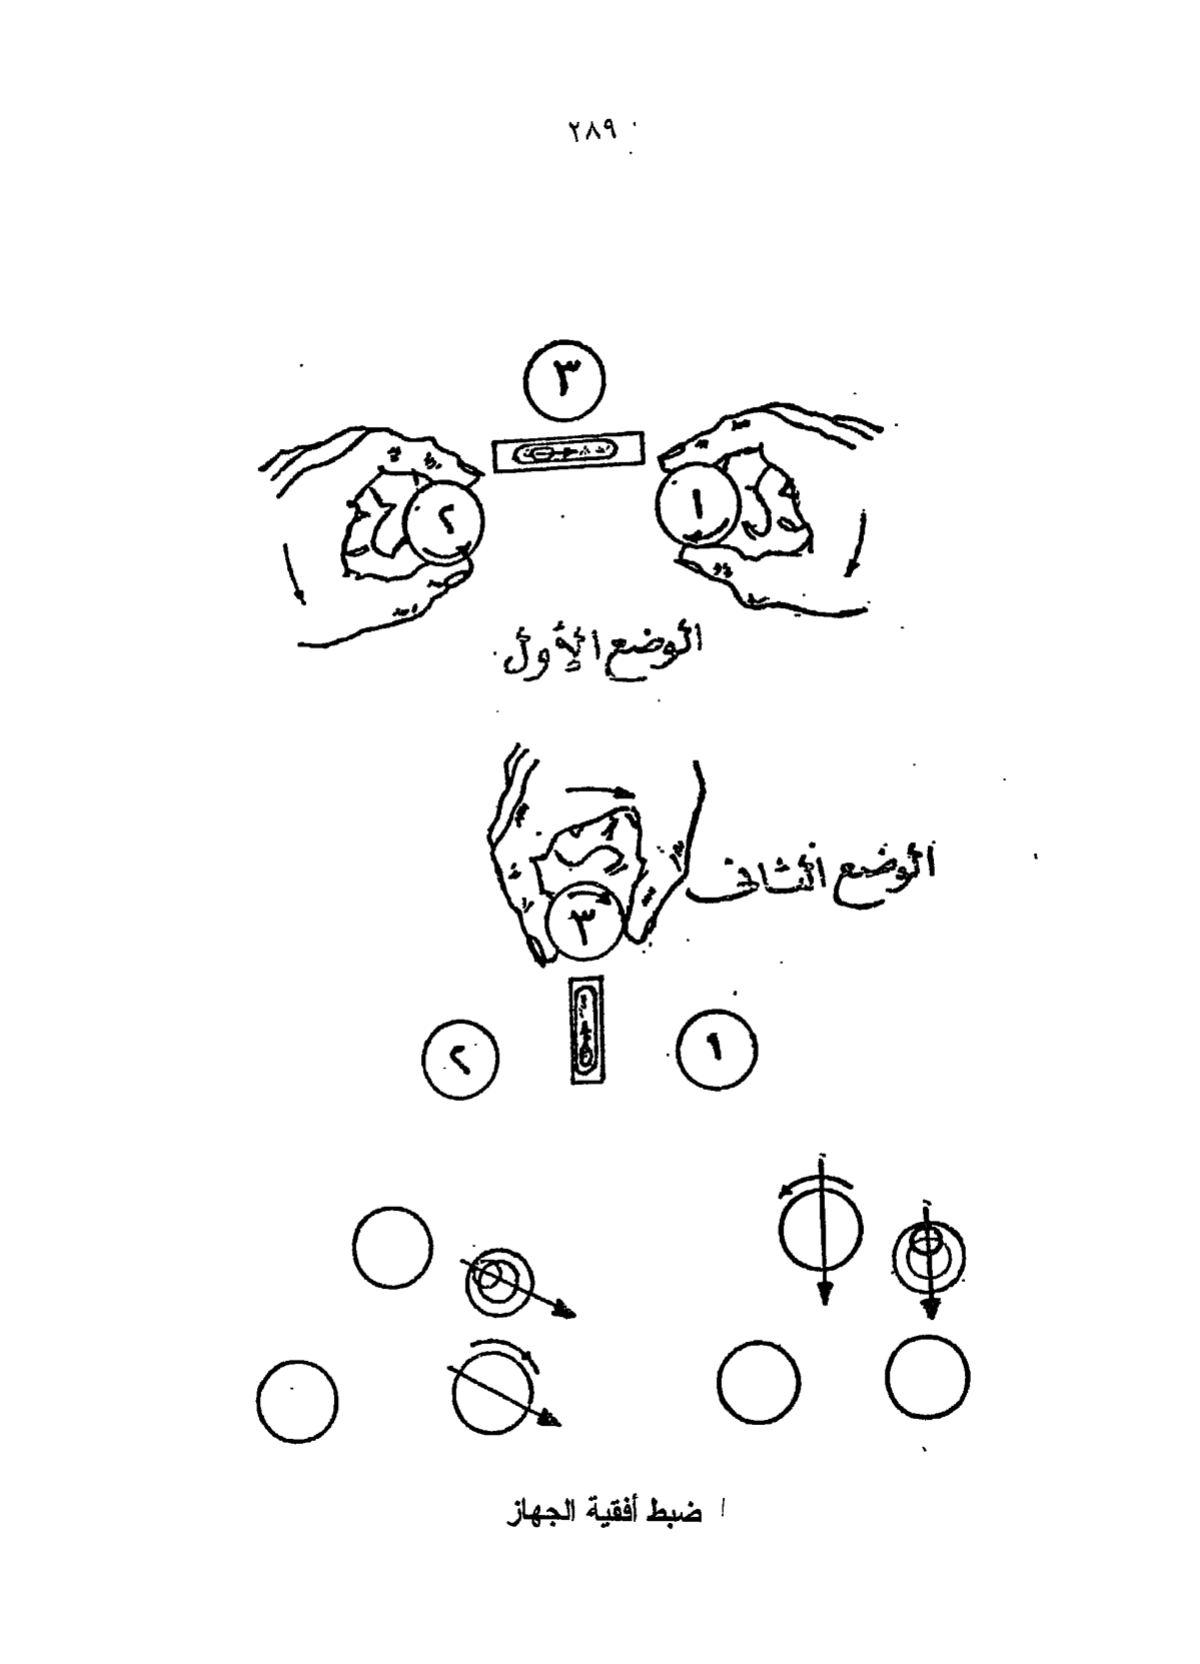 ٢٨٩
٣
٢
١
الوضع الأول
الوضع الثانى
٣
٢
١
ضبط أفقية الجهاز